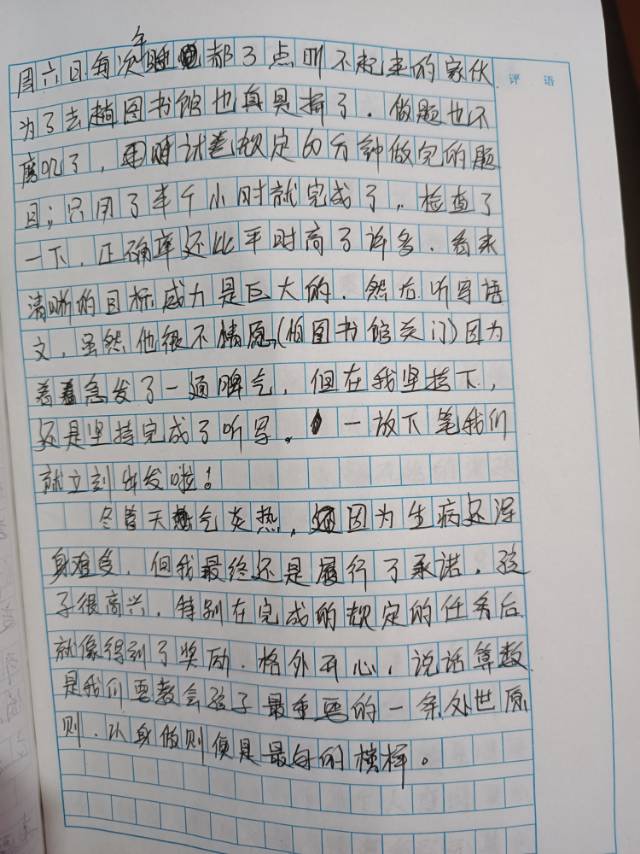 评语
周六日每次午睡都3点叫不起来的家伙
为了去趟图书馆也真是拼了。做题也不
磨叽了,用时试卷规定60分钟做完的题
目;只用了半个小时就完成了。检查了
一下,正确率还比平时高了许多。看来
清晰的目标威力是巨大的。然后听写语
文,虽然他很不情愿(怕图书馆关门)因为
着急发了一通脾气,但在我坚持下,
还是坚持完成了听写。一放下笔我们
就立刻出发啦!
尽管天气炎热,因为生病还浑
身难受,但我最终还是履行了承诺。孩
子很高兴,特别在完成的规定的任务后
就像得到了奖励。格外开心,说话算数
是我们要教会孩子最重要的一条处世原
则。以身做则便是最好的榜样。